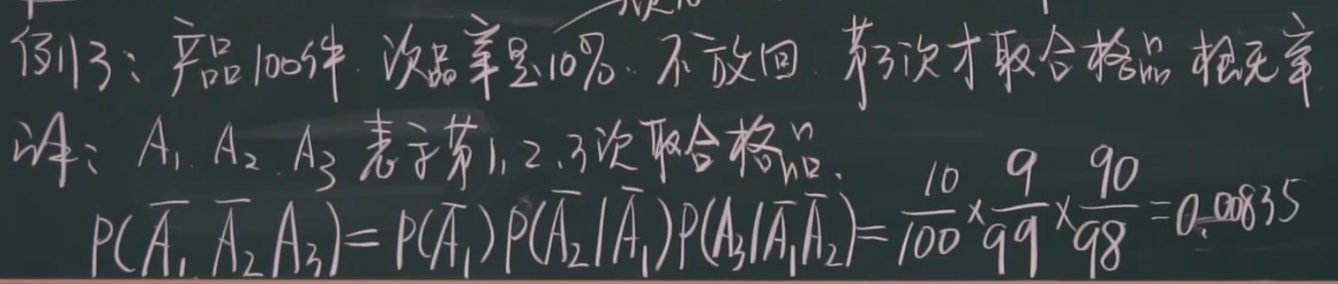 例3：产品100件 次品率是10% 不放回 第3次才取合格品 概率
解：A₁ A₂ A₃ 表示第1,2,3次取合格品.
P(A̅₁ A̅₂ A₃)=P(A̅₁)P(A̅₂|A̅₁)P(A₃|A̅₁A̅₂)=10/100×9/99×90/98=0.00835